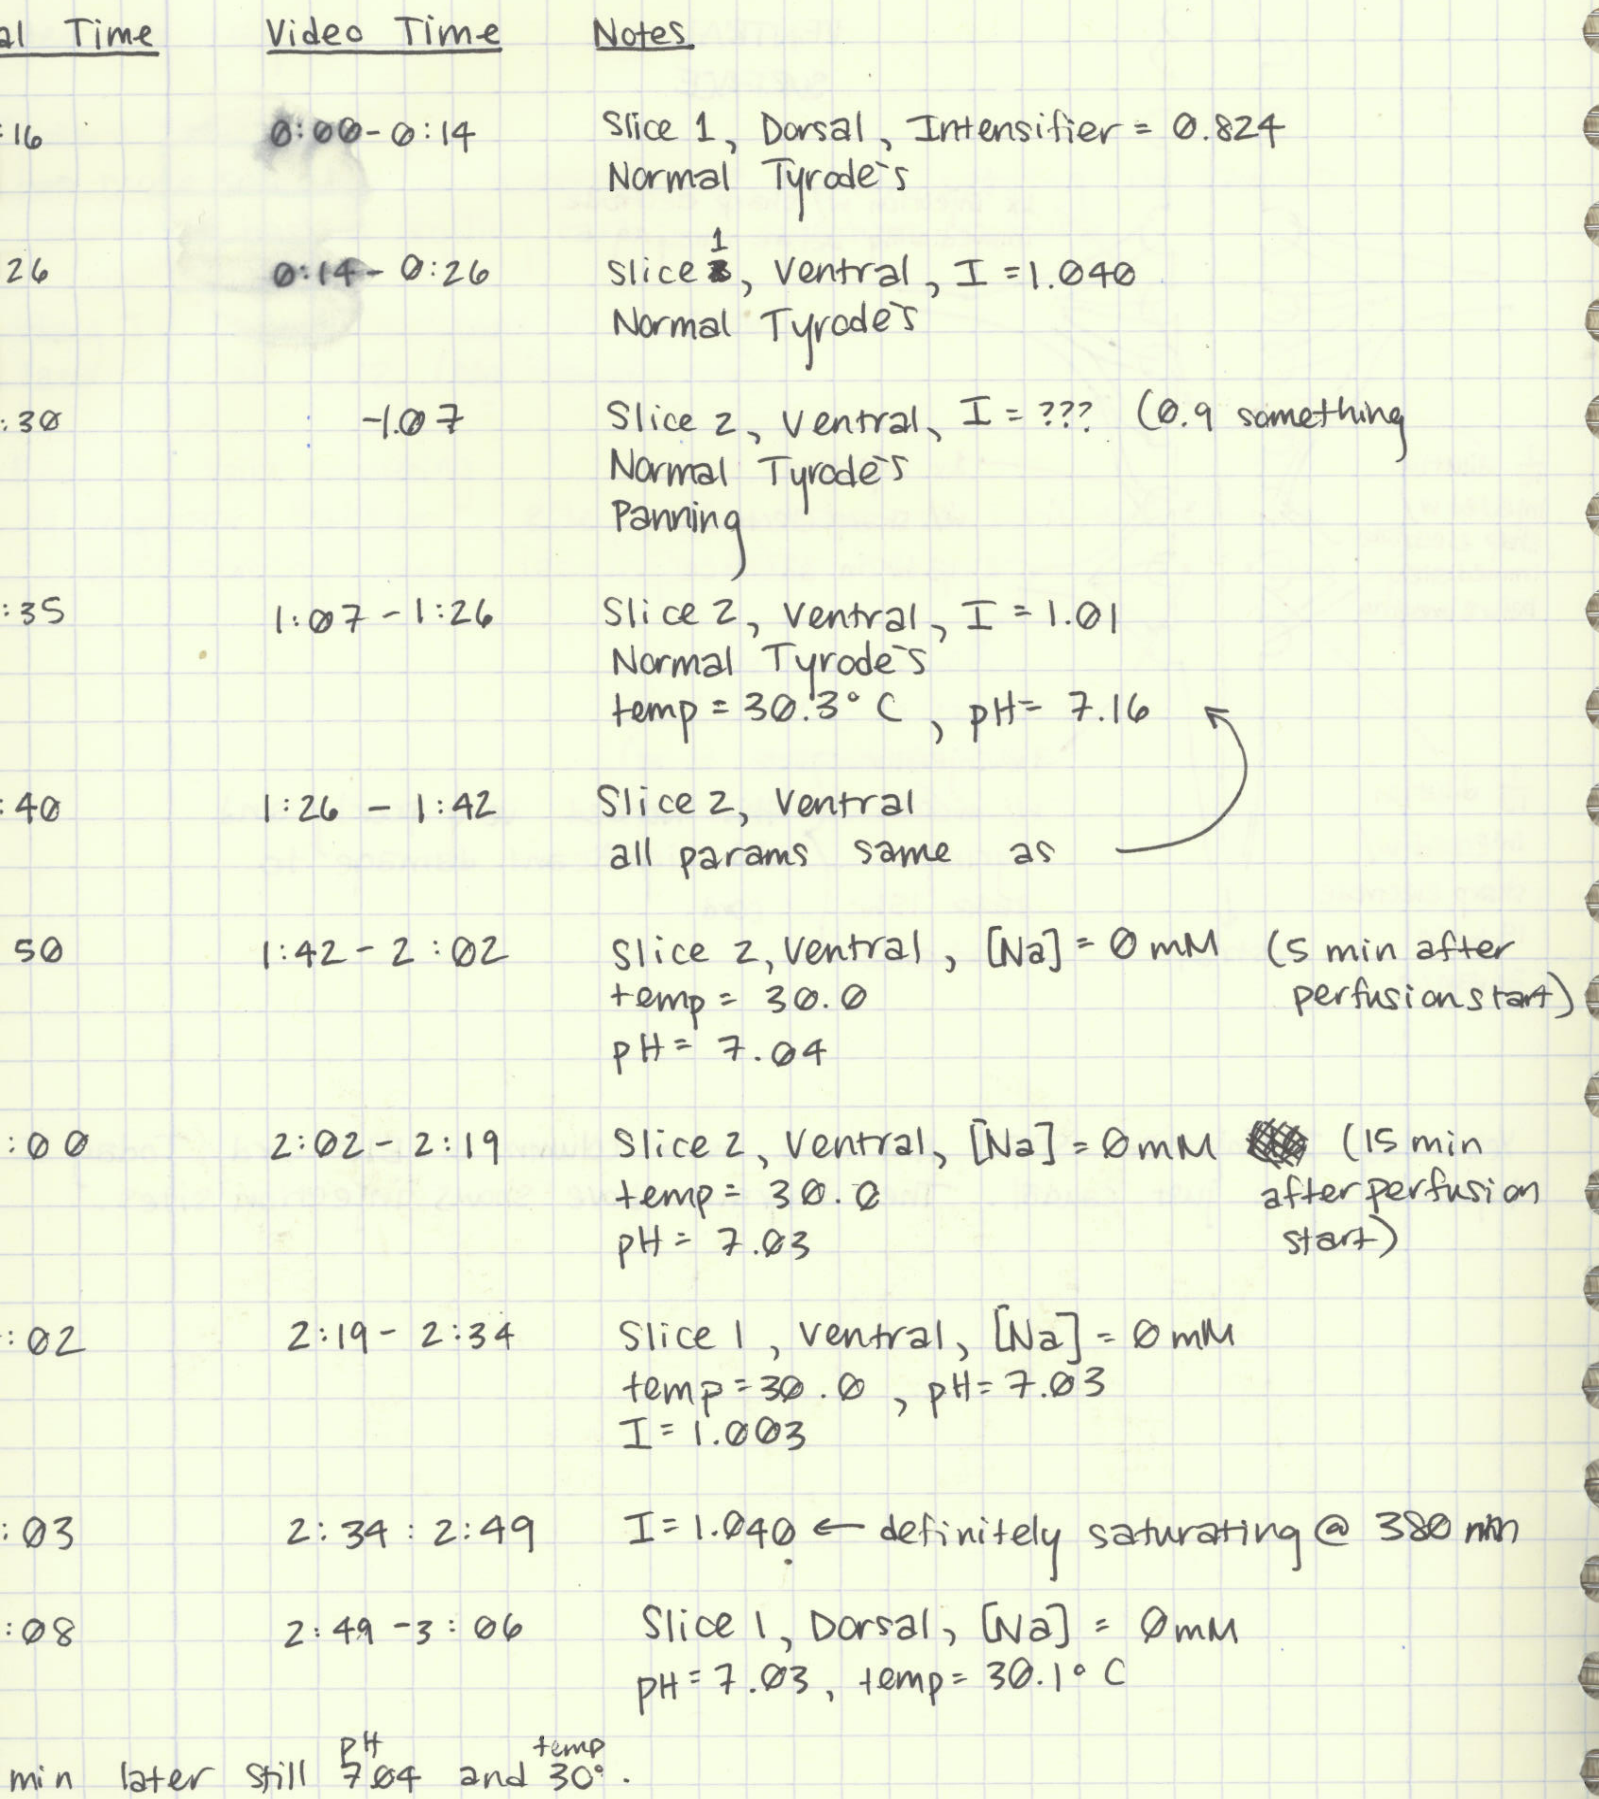 al Time Video Time Notes
:16 0:00-0:14 Slice 1, Dorsal, Intensifier = 0.824
Normal Tyrode's
26 0:14-0:26 Slice 1, Ventral, I = 1.040
Normal Tyrode's
:30 -1:07 Slice 2, Ventral, I = ??? (0.9 something
Normal Tyrode's
Panning
:35 1:07-1:26 Slice 2, Ventral, I = 1.01
Normal Tyrode's
temp = 30.3° C, pH = 7.16
:40 1:26 - 1:42 Slice 2, Ventral
all params same as
50 1:42-2:02 Slice 2, Ventral, [Na] = 0 mM (5 min after
temp = 30.0 perfusion start)
pH = 7.04
:00 2:02-2:19 Slice 2, Ventral, [Na] = 0 mM (15 min
temp = 30.0 after perfusion
pH = 7.03 start)
:02 2:19-2:34 Slice 1, Ventral, [Na] = 0 mM
temp = 30.0, pH = 7.03
I = 1.003
:03 2:34 : 2:49 I = 1.040 ← definitely saturating @ 380 nm
:08 2:49-3:06 Slice 1, Dorsal, [Na] = 0 mM
pH = 7.03, temp = 30.1° C
pH temp
min later still 7.04 and 30°.